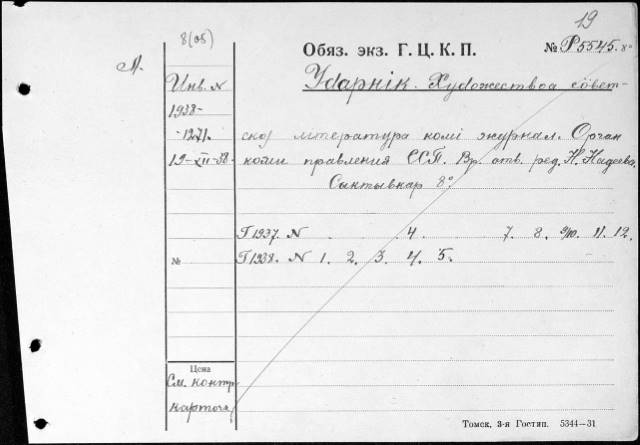 19
8(05)
Обяз. экз. Г. Ц. К. П. № Р5545. 8°
М.
Инв. N
1938-
-1271.
19-XII-38.
Ударнiк. Художествоа совет-
скоj лiтература комi журнал. Орган
коми правления ССП. Вр. отв. ред. Н. Надеева.
Сыктывкар 8°.
Г 1937. N 4. 7. 8. 9/10. 11. 12.
№ Г 1938. N 1. 2. 3. 4. 5.
Цена
См. контр.
карточк
Томск, 3-я Гостип. 5344—31